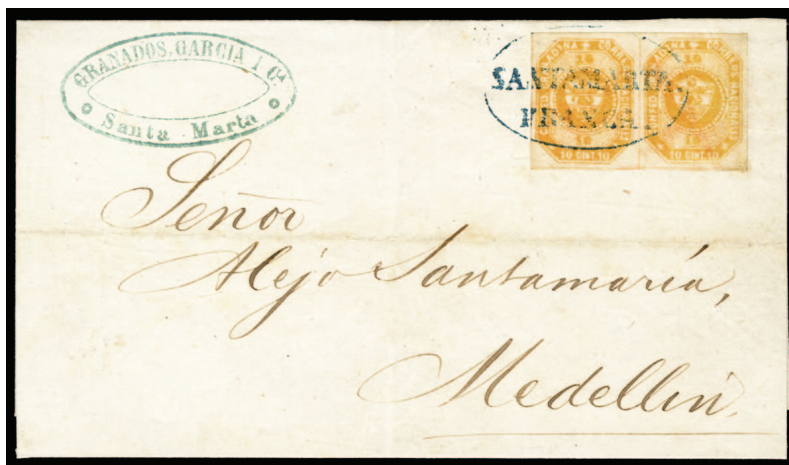 GRANADOS, GARCIA I Cª.
Santa Marta
SANTAMARTA.
FRANCA.
10 CENT. 10
10 CENT. 10
Señor
Alejo Santamaría,
Medellin.